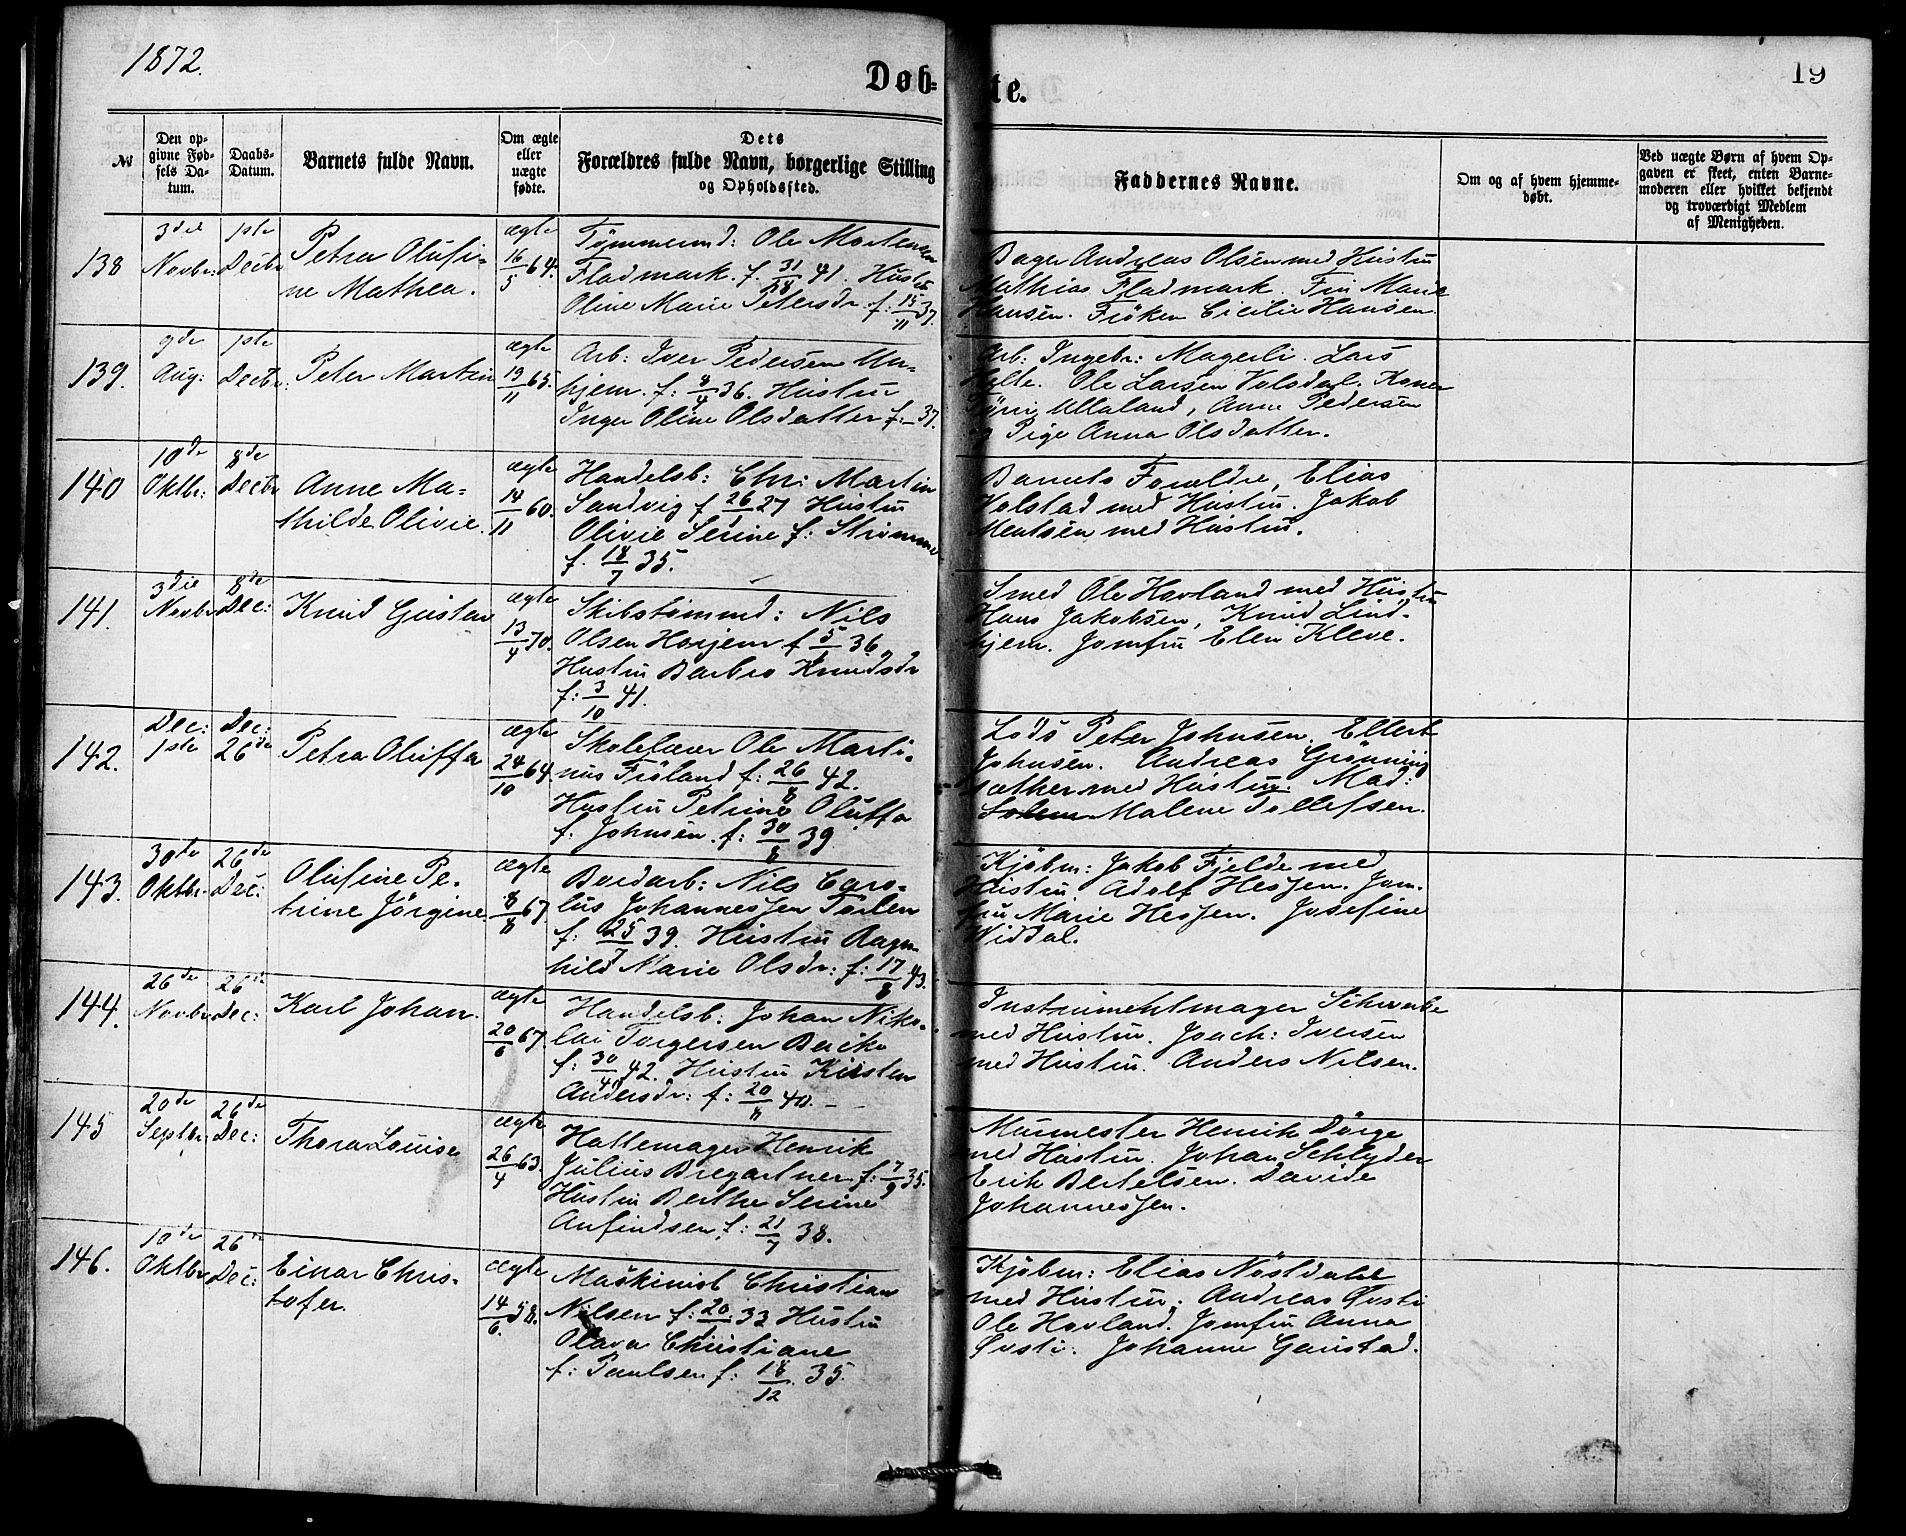 1872.
19
Døb-
te.
№
Den op-
givne Fød-
sels Da-
tum.
Daabs-
Datum.
Barnets fulde Navn.
Om ægte
eller
uægte
fødte.
Dets
Forældres fulde Navn, borgerlige Stilling
og Opholdssted.
Faddernes Navne.
Om og af hvem hjemme-
døbt.
Ved uægte Børn af hvem Op-
gaven er skeet, enten Barne-
moderen eller hvilket bekjendt
og troværdigt Medlem
af Menigheden.
138
3die
Novbr:
1ste
Decbr
Petra Olufi-
ne Mathea.
ægte
16/5 64.
Tømmermd: Ole Mortensen
Fladmark. f. 31/8 41. Hustru
Olene Marie Petersdr f: 15/11 37.
Bager Andreas Olsen med Hustru
Mathias Fladmark. Fru Marie
Hansen. Frøken Cicilie Hansen
139.
9de
Aug:
1ste
Decbr:
Peter Martin
ægte
19/11 65.
Arb: Iver Pedersen Un-
hjem. f: 8/4 36. Hustru
Inger Oline Olsdatter f. - 37.
Arb: Ingebr: Magerli. Lars
Hylte. Ole Larsen Volsdal. Koner
Ullaland, Anne Pedersen
og Pige Anna Olsdatter.
140
10de
Oktbr:
8de
Decbr
Anne Ma-
thilde Olivie.
ægte
14/11 60.
Handelsb: Chr: Martin
Sandvig f 26/9 27 Hustru
Olivie Serine f: Strømme
f. 18/7 35.
Barnets Forældre, Elias
Volstad med Hustru. Jakob
Mentsen med Hustru.
141.
3die
Novbr
8de
Dec:
Knud Gustav
ægte
13/4 70.
Skibstømmd: Nils
Olsen Horjem f 5/1 36
Hustru Barbro Knudsdr
f: 3/10 41.
Smed Ole Hovland med Hustru
Hans Jakobsen, Knud Lind-
hjem. Jomfru Elen Kleve.
142.
Dec:
1ste
Dec:
26de
Petra Oluffa
ægte
24/10 64
Skolelærer Ole Marti-
nus Frøland f: 26/8 42.
Hustru Petrine Oluffa
f. Johnsen. f: 30/8 39
Lods Peter Johnsen. Ellert
Johnsen. Andreas Grønning
sæther med Hustru. Mad:
Malene Tollefsen.
143.
30te
Oktbr.
26de
Dec:
Olufine Pe-
trine Jørgine.
ægte
8/8 67.
Bordarb: Nils Caro-
lus Johannessen Torlen
f: 25/7 39. Hustru Ragn-
hild Marie Olsdr: f: 17/8 43.
Kjøbm: Jakob Fjelde med
Hustru Adolf Hessen. Jom-
fru Marie Hessen. Josefine
Widdal.
144.
26de
Novbr
26de
Dec:
Karl Johan.
ægte
20/6 67.
Handelsb: Johan Niko-
lai Torgersen Bakke
f: 30/10 42. Hustru Kirsten
Andersdr: f: 20/8 40. -
Instrumentmager Schwabe
med Hustru. Joach: Iversen
med Hustru. Anders Nilsen.
145
20de
Septbr:
26de
Dec:
Thora Louise
ægte
26/4 63.
Hattemager Henrik
Julius Bregartner f: 7/9 35.
Hustru Berthe Serine
Anfindsen, f: 21/7 38.
Murmester Henrik Dørge
med Hustru. Johan Schlyder
Erik Bertelsen. Davide
Johannessen.
146.
10de
Oktbr
26de
Dec:
Einar Chris-
tofer.
ægte
14/6. 58.
Maskinist Christian
Nilsen f: 20/1 33 Hustru
Olava Christiane
f: Paulsen f: 18/12 35.
Kjøbm: Elias Nøstdahl
med Hustru. Andreas Øvsti
Ole Hovland. Jomfru Anna
Øvsti. Johanne Gaustad.